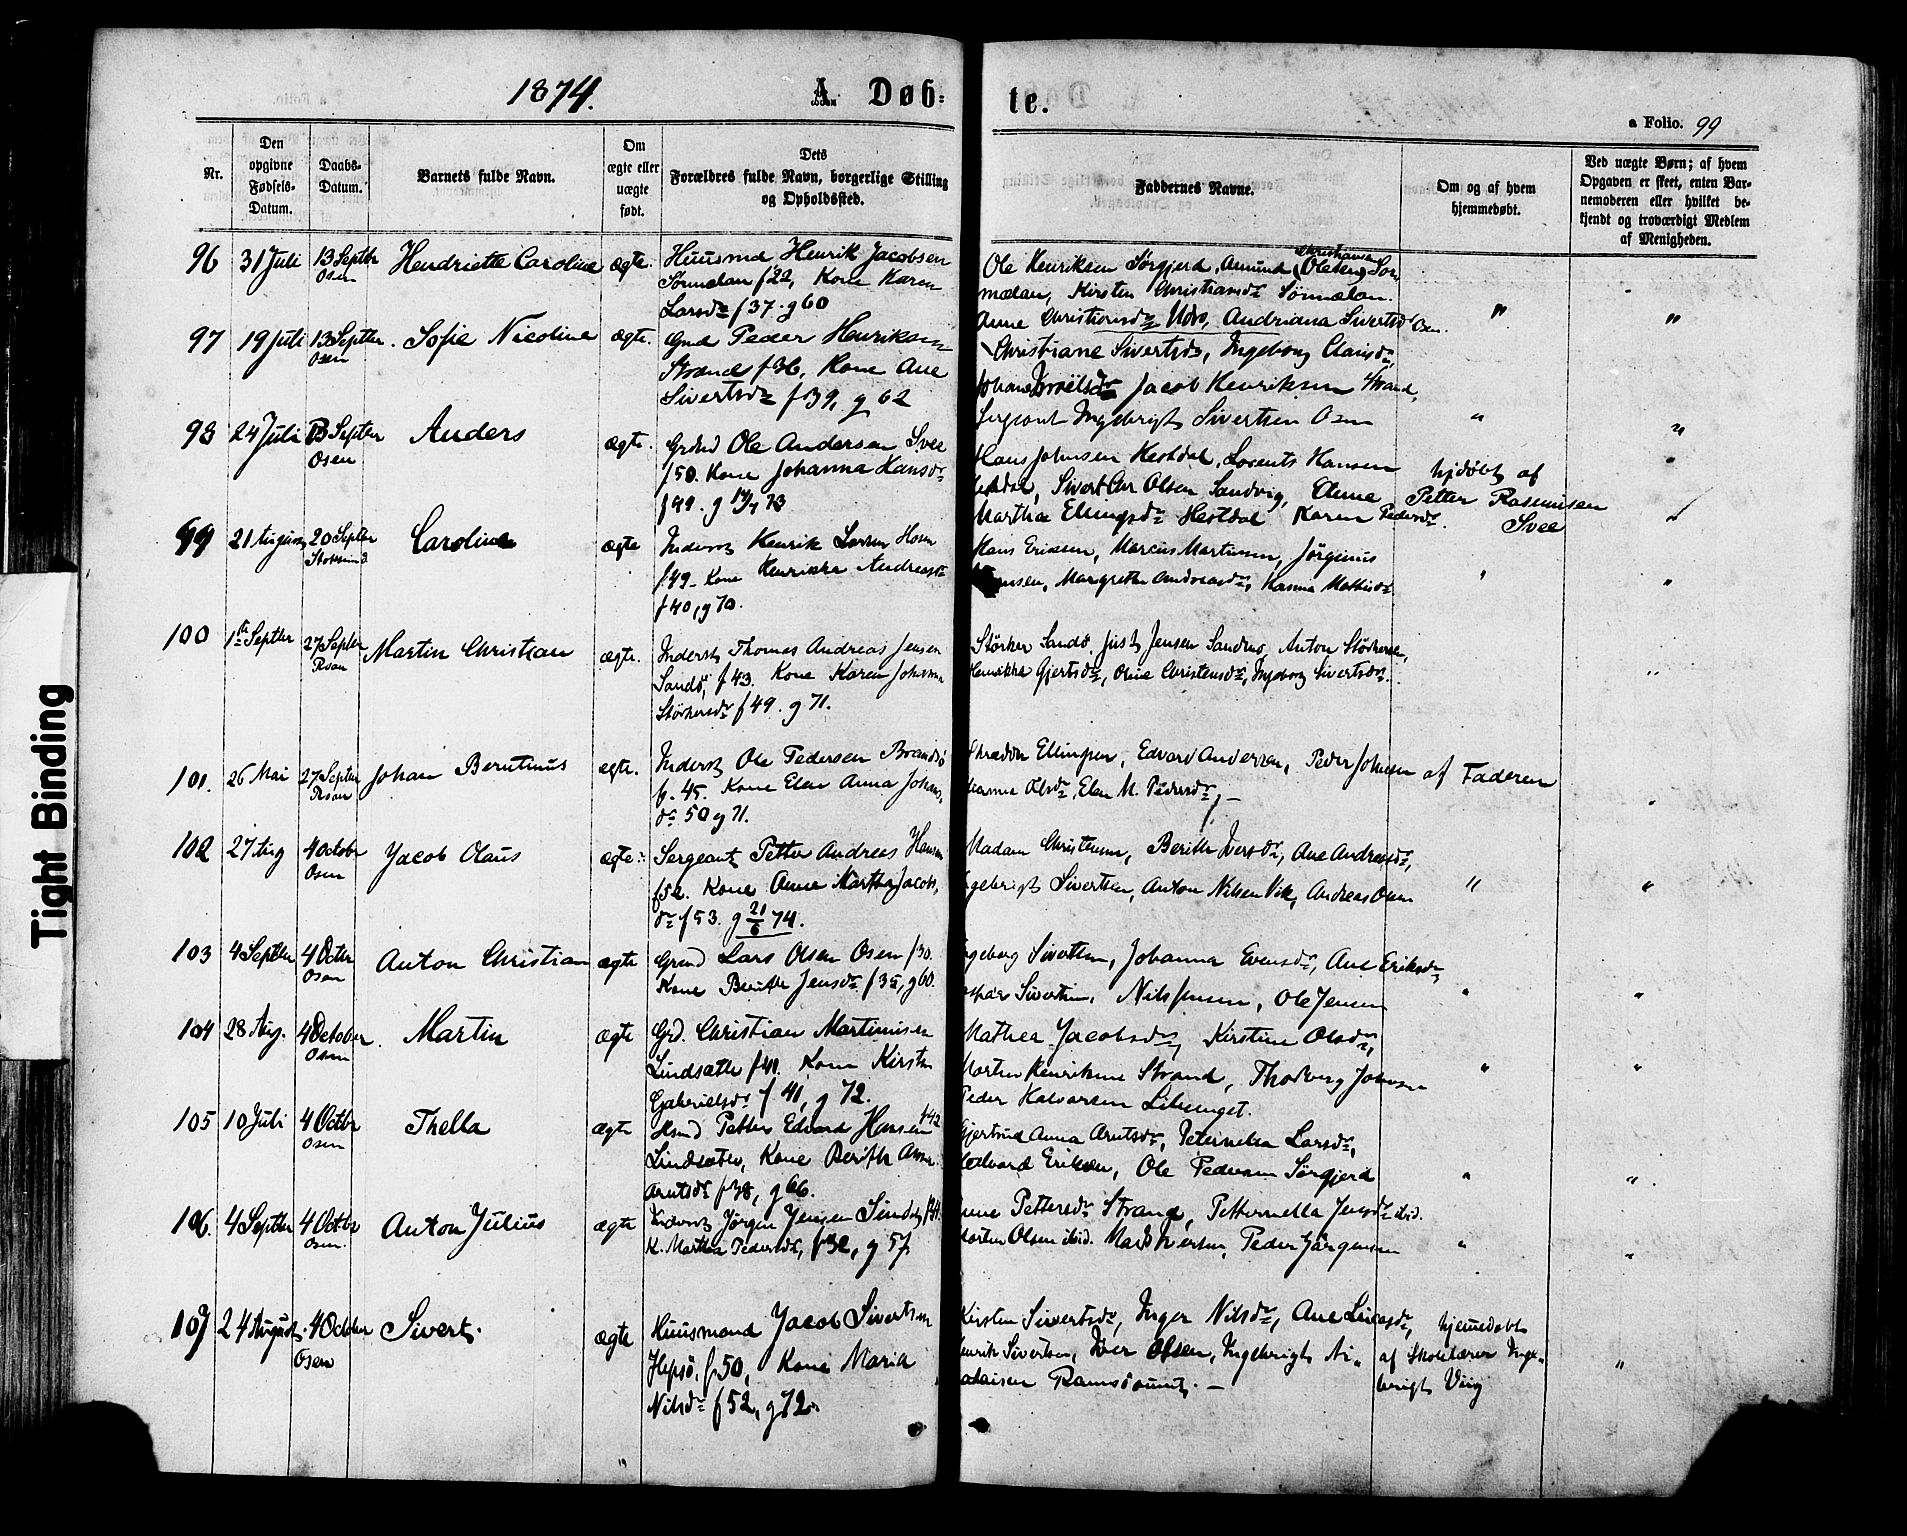 Tight Binding
1874.
A Døb-
te.
a Folio. 99
Nr.
Den opgivne Fødsels-Datum.
Daabs-Datum.
Barnets fulde Navn.
Om ægte eller uægte født.
Dets Forældres fulde Navn, borgerlige Stilling og Opholdssted.
Faddernes Navne.
Om og af hvem hjemmedøbt.
Ved uægte Børn; af hvem Opgaven er skeet, enten Barnemoderen eller hvilket bekjendt og troværdigt Medlem af Menigheden.
96 31 Juli 13 Septbr Osen Henriette Caroline ægte. Huusmd Henrik Jacobsen
Sørmælan f 22, Kone Karen
Larsdr f 37. g 60
Ole Henriksen Sørgjerd, Amund Christiansen (Olesen) Sør
mælan, Kirsten Christiansdr Sørmælan.
Anne Christiansdr " "
97 19 Juli 13 Septbr. Osen Sofie Nicoline ægte. Gmd Peder Henriksen
Strand f 36, Kone Ane
Sivertsdr f 39, g 62
Andriana Sivertsdr Osen.
Christiane Sivertsdr, Ingeborg Clausdr,
Jacob Henriksen Strand,
Sergeant Ingebrigt Sivertsen Osen " "
98 24 Juli 13 Septbr Osen Anders ægte. Grbrd Ole Andersen Svee
f 50. Kone Johanna Hansdr
f 49. g 73
Hans Johnsen Hestdal, Lorents Hansen
Hestdal, Sivert Chr Olsen Sandvig, Anne
Martha Ellingsdr Hestdal Karen Pedersdr.
hjdøbt af
Petter Rasmusen
Svee "
99 21 August 20 Septbr Stoksund Caroline ægte Inderst Henrik Larsen Hosen
f 49 - Kone Henrikke Andreasdr
f 40, g 70.
Hans Eriksen, Marcus Martinsen, Jørginus
Margrethe Andreasdr, Hanna Mathisdr " "
100 1ste Septbr 27 Septbr Roan Martin Christian ægte. Inderst Thomas Andreas Jensen
Sandø, f 43. Kone Karen Johanna
Størkersdr f 49. g 71.
Størker Sandø, Just Jensen Sandnes, Anton Størkersen,
Henrikke Gjertsdr, Oline Christensdr, Ingeborg Sivertsdr. "
101. 26 Mai 27 Septbr Roan Johan Berntinus ægte. Inderst Ole Pedersen Brandsø
f. 45. Kone Elen Anna Johans
dr 50 g 71.
Ellingsen, Edvard Andersen, Peder Johnsen
Olsdr, Elen M. Pedersdr, -
af Faderen "
102 27 Aug 4 October Osen Jacob Olaus ægte. Sergeant Petter Andreas Hansen
f 52. Kone Anne Martha Jacobs
dr f 53. g 21/6 74.
Madam Christensen, Berith Iversdr, Ane Andreasdr,
Ingebrigt Sivertsen, Anton Nilsen Vik, Andreas Osen " "
103 4 Septbr 4 Octbr Osen Anton Christian ægte Grmd Lars Olsen Osen f 30.
Kone Berithe Jensdr f 35, g 60.
Ingeborg Sivertsen, Johanna Evensdr, Ane Eriksdr,
Sivertsen, Nils Jensen, Ole Jensen " "
104 28 Aug. 4 October. Osen Martin ægte Grd. Christian Martinusen
Lindsæter f 41. Kone Kirsten
Gabrielsdr f 41, g 72.
Mathea Jacobsdr, Kirstine Olsdr,
Morten Henriksen Strand, Thorberg Johnsen
Peder Halvorsen " "
105 10 Juli 4 Octbr Osen Thella ægte Hsmd Petter Edvard Hansen f 42
Lindsæter, Kone Berith Anna
Arntsdr f 38, g 66.
Gjertrud Anna Arntsdr, Peternelia Larsdr,
Edvard Eriksen, Ole Pedersen Sørgjerd " "
106. 4 Septbr 4 Octbr Osen. Anton Julius ægte Inderst Jørgen Jensen
K. Martha Pedersdr, f 32, g 57.
Anne Pettersdr Strand, Petternella Jensdr ibid.
Morten Olsen ibid. Mads Iversen, Peder Jørgensen " "
107 24 August. 4 October Osen Sivert. ægte Huusmand Jacob Sivertsen
Hepsø, f 50, Kone Maria
Nilsdr f 52, g 72.
Kirsten Sivertsdr, Inger Nilsdr, Ane Lucasdr,
Henrik Sivertsen, Iver Olsen, Ingebrigt Ni-
colaisen Ramsøsund. -
hjemmedøbt
af Skolelærer Inge-
brigt Viig "